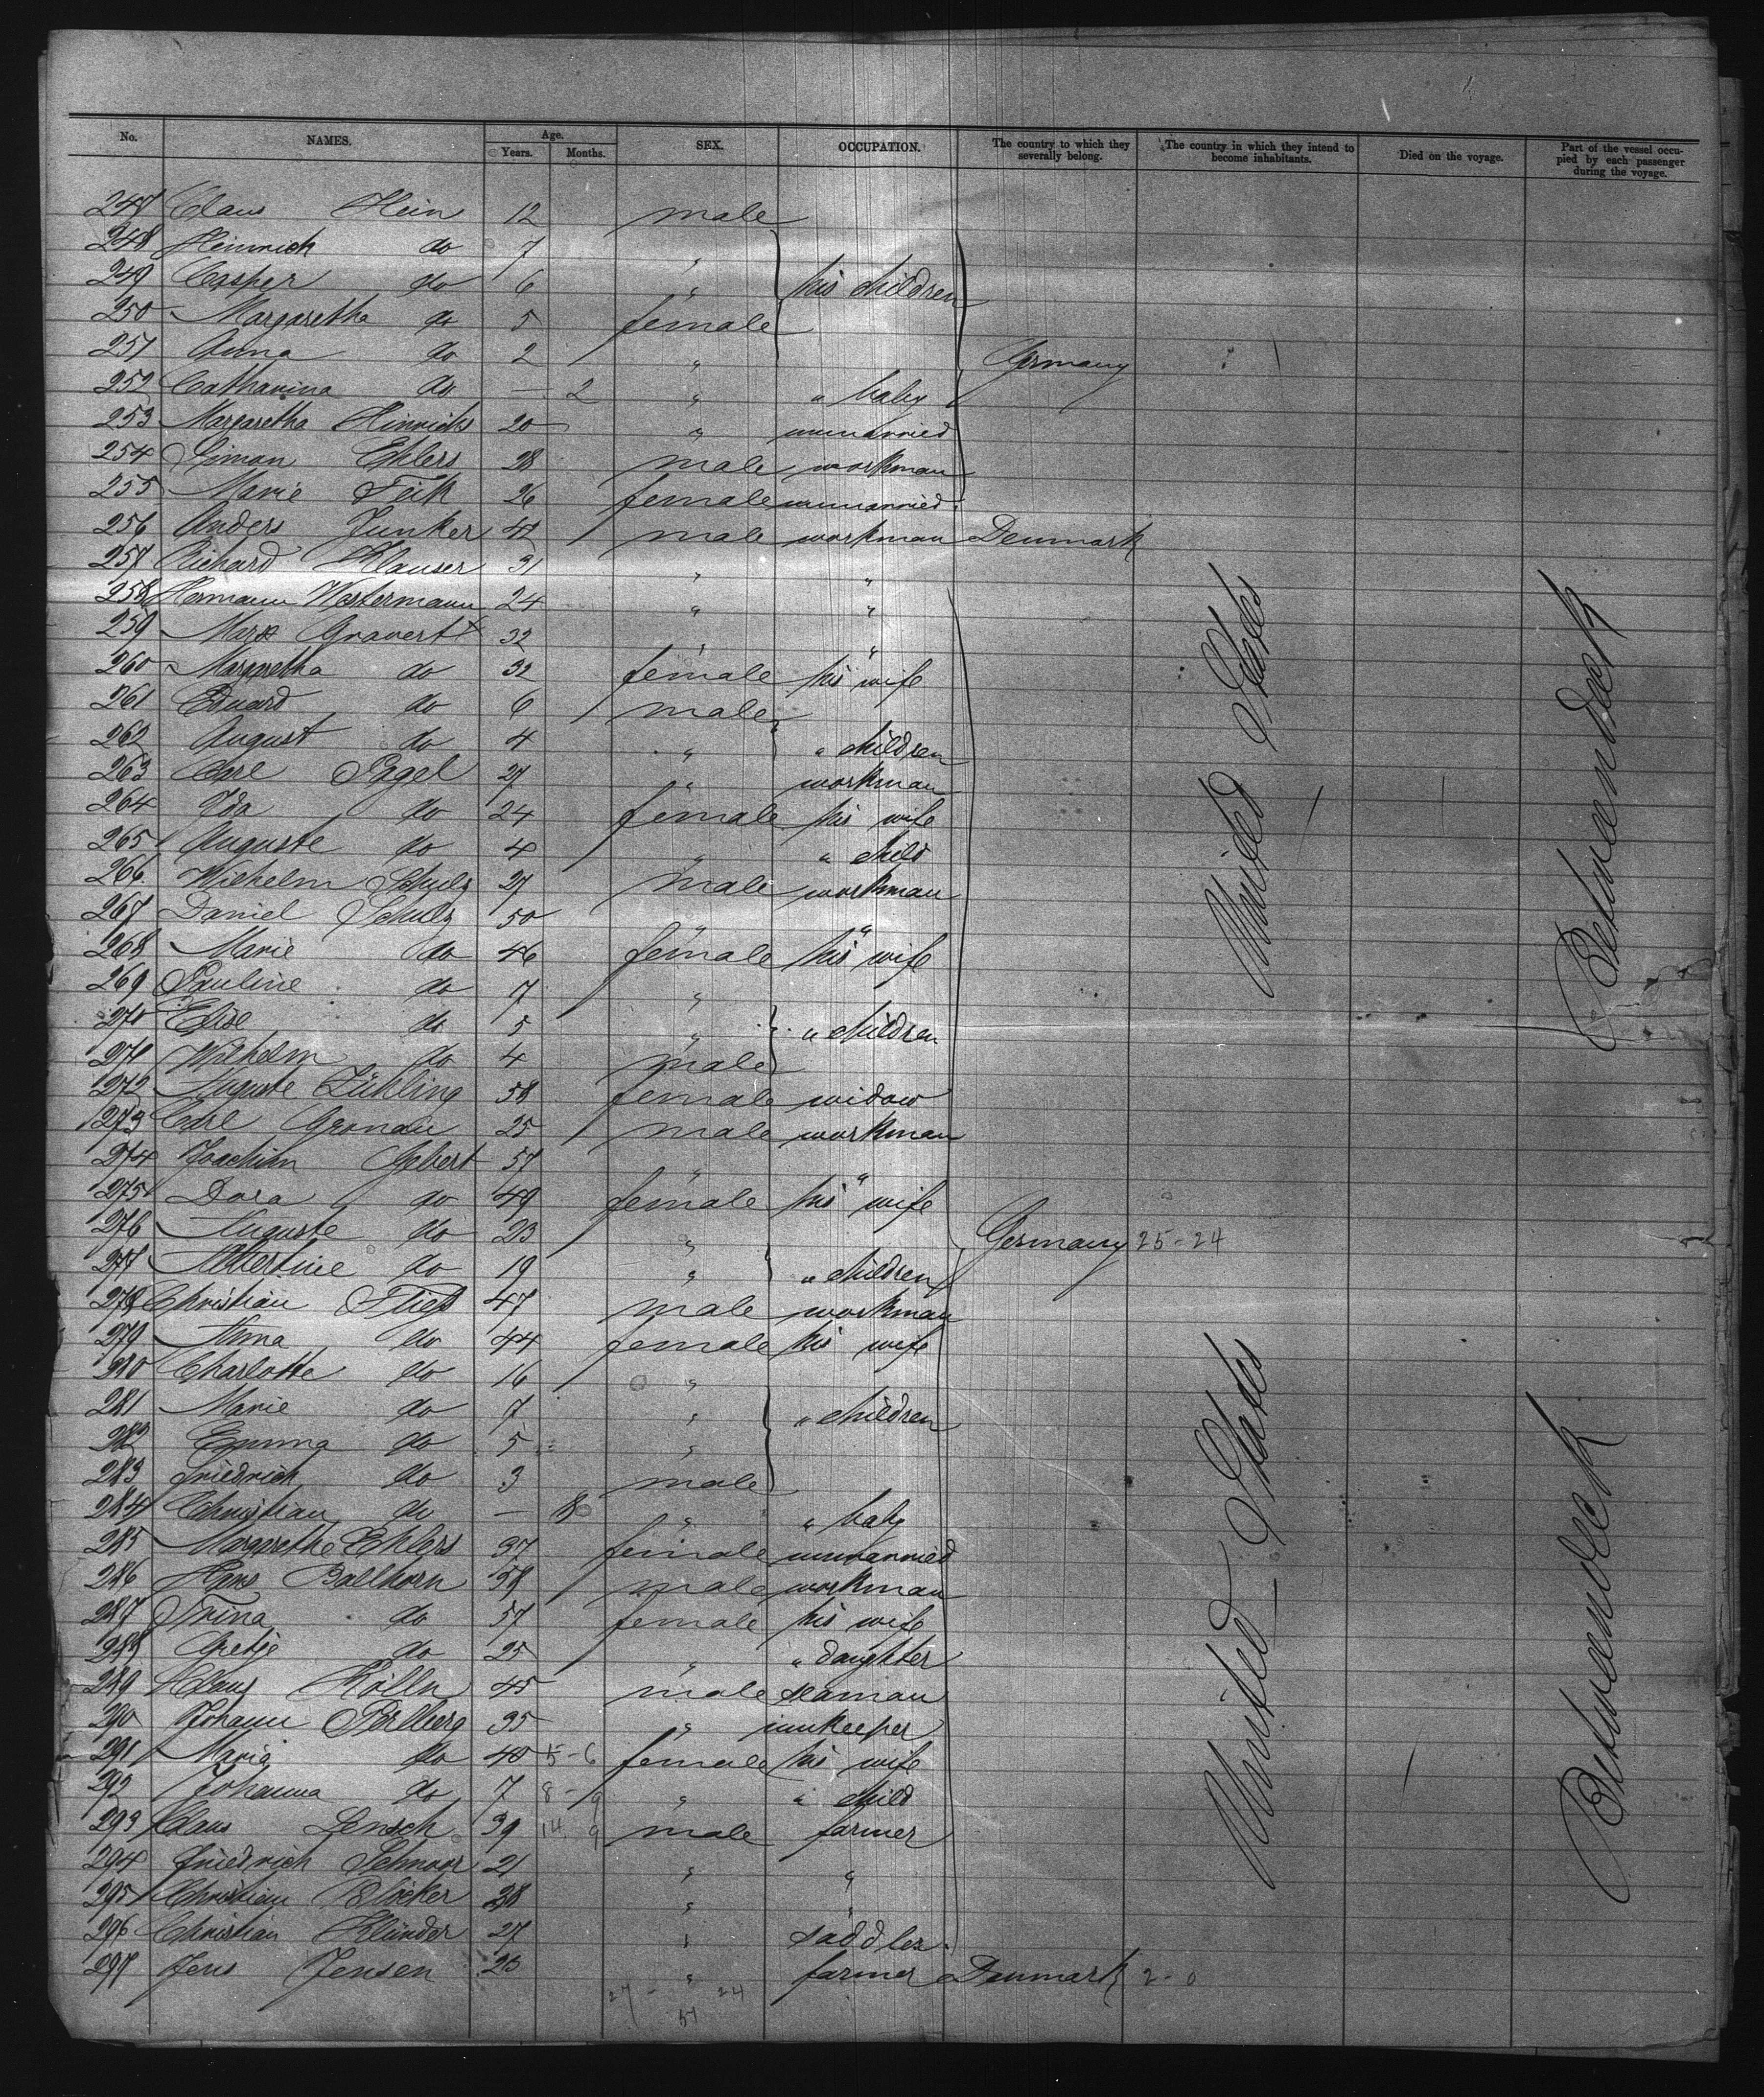 No. NAMES. Age. Years. Months. SEX. OCCUPATION. The country to which they severally belong. The country in which they intend to become inhabitants. Died on the voyage. Part of the vessel occupied by each passenger during the voyage.
247 Claus Hein 12 male
248 Heinrich do 7 "
249 Casper do 6 " his children
250 Margaretha do 5 female
251 Anna do 2 " Germany
252 Catharina do — 2 " " baby
253 Margaretha Hinrichs 20 " unmarried
254 Simon Ehlers 28 male workman
255 Marie Feik 26 female unmarried
256 Anders Junker 42 male workman Denmark
257 Richard Klauser 31 " "
258 Hermann Westermann 24 " "
259 Marx Gravert 32 " "
260 Margaretha do 32 female his wife
261 Eduard do 6 male
262 August do 4 " " children
263 Carl Pagel 27 " workman
264 Ida do 24 female his wife
265 Auguste do 4 " " child
266 Wilhelm Schulz 27 male workman
267 Daniel Schulz 50 " "
268 Marie do 46 female his wife
269 Pauline do 7 "
270 Elise do 5 " " children
271 Wilhelm do 4 male
272 Auguste Lühling 58 female widow
273 Carl Gronau 25 male workman
274 Joachim Gebert 57 " "
275 Dora do 49 female his wife
276 Auguste do 23 " Germany 25-24
277 Albertine do 19 " " children
278 Christian Fließ 47 male workman
279 Anna do 44 female his wife
280 Charlotte do 16 "
281 Marie do 7 " " children
282 Emma do 5 "
283 Friedrich do 3 male
284 Christian do — 8 " " baby
285 Margarethe Ehlers 37 female unmarried
286 Hans Ballhorn 58 male workman
287 Trina do 57 female his wife
288 Gretje do 25 " " daughter
289 Claus Kölln 45 male seaman
290 Johann Perlberg 35 " innkeeper
291 Maria do 40 5-6 female his wife
292 Johanna do 7 8-9 " " child
293 Claus Lensch 39 14 9 male farmer
294 Friedrich Schnoor 21 " "
295 Christian Blöcker 28 " "
296 Christian Klünder 27 " saddler
297 Jens Jensen 23 " farmer Denmark 2-0
27 - 24
51
United States
Betweendeck
United States
Betweendeck